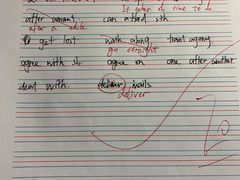 it gives sb time to do
after amount can afford sth
after a while
get lost walk along travel agency
go straight
agree with sb. agree on one after another
deal with deliver mails
deliver
10